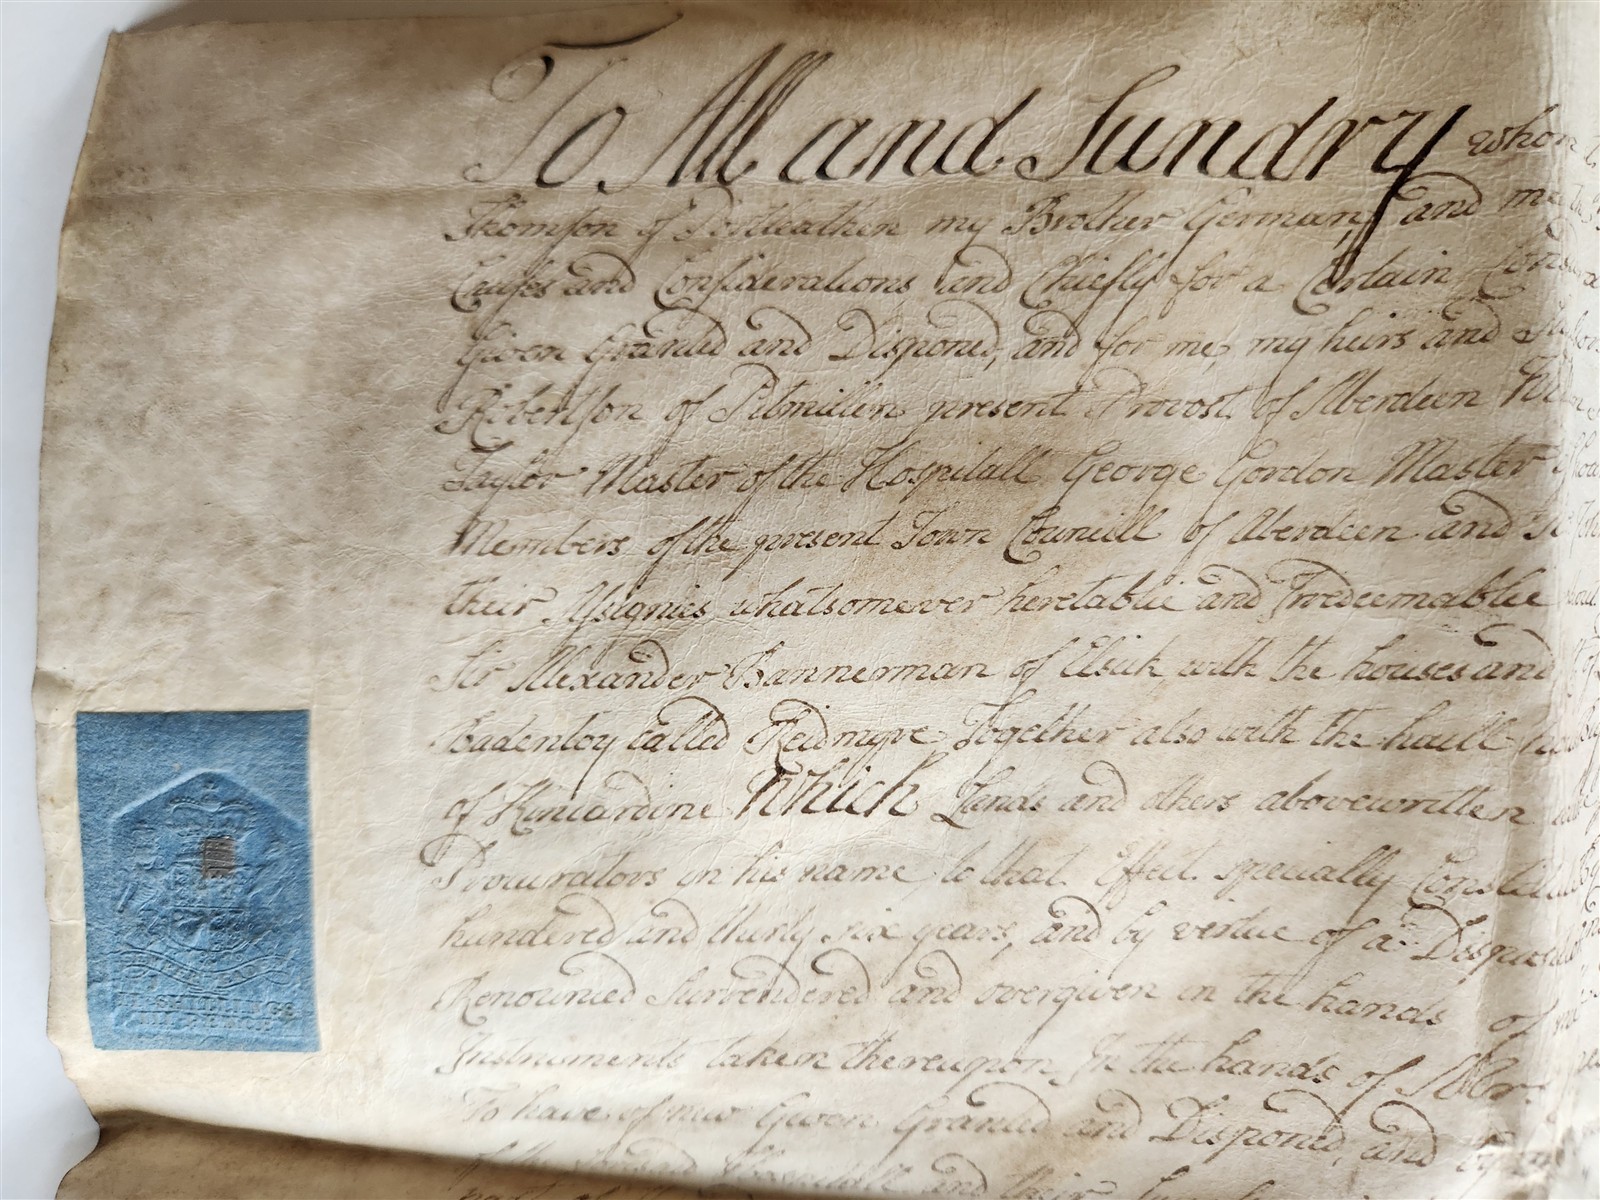 To All and Sundry whom
Thomson of Portleathen my Brother German, and me
Causes and Considerations and Chiefly for a Certain
Given Granted and Disponed, and for me, my heirs and
Robertson of Pitmillen present Provost of Aberdeen
Taylor Master of the Hospitall George Gordon Master
Members of the present Town Councill of Aberdeen and
their Assignies whatsomever heretablie and Irredeemablie
Sir Alexander Bannerman of Elsick with the houses and
Badentoy called Reidmyre Together also with the haill
of Kincardine Which Lands and others abovewritten
Procurators in his name to that Effect specially
hundered and thirty six years, and by virtue of a
Renounced Surrendered and overgiven in the hands of
Instruments taken thereupon In the hands of
To have of new Given Granted and Disponed, and
of the
SHILLINGS